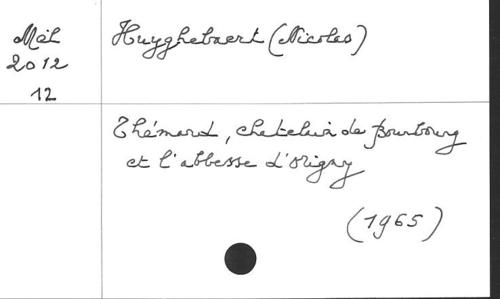 Mél
2012
12
Huyghebaert (Nicolas)
Thémard, chatelain de Bourbourg
et l'abbesse d'Origny
(1965)